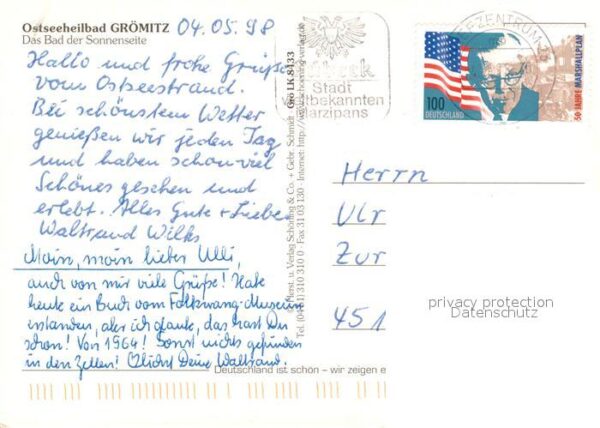 Ostseeheilbad GRÖMITZ 04.05.98
Das Bad der Sonnenseite
Hallo und frohe Grüße
vom Ostseestrand.
Bei schönstem Wetter
genießen wir jeden Tag
und haben schon viel
Schönes gesehen und
erlebt. Alles Gute + Liebe
Waltraud Wilks
Moin, moin lieber Ulli,
auch von mir viele Grüße! Habe
heute ein Buch vom Folkwang-Museum
erstanden, aber ich glaube, das hast Du
schon! Von 1964! Sonst nichts gefunden
in den Zelten! Deine Waltraud.
© Kunst. u. Verlag Schöning & Co. + Gebr. Schmidt
Tel. (0451) 310 310 0 Fax 31 03 130 Internet: http://www.schoening-verlag.de
Grö LK 8433
Stadt
weltbekannten
Marzipans
100
DEUTSCHLAND
50 JAHRE MARSHALLPLAN
Herrn
Ulr
Zur
451
privacy protection
Datenschutz
Deutschland ist schön – wir zeigen e